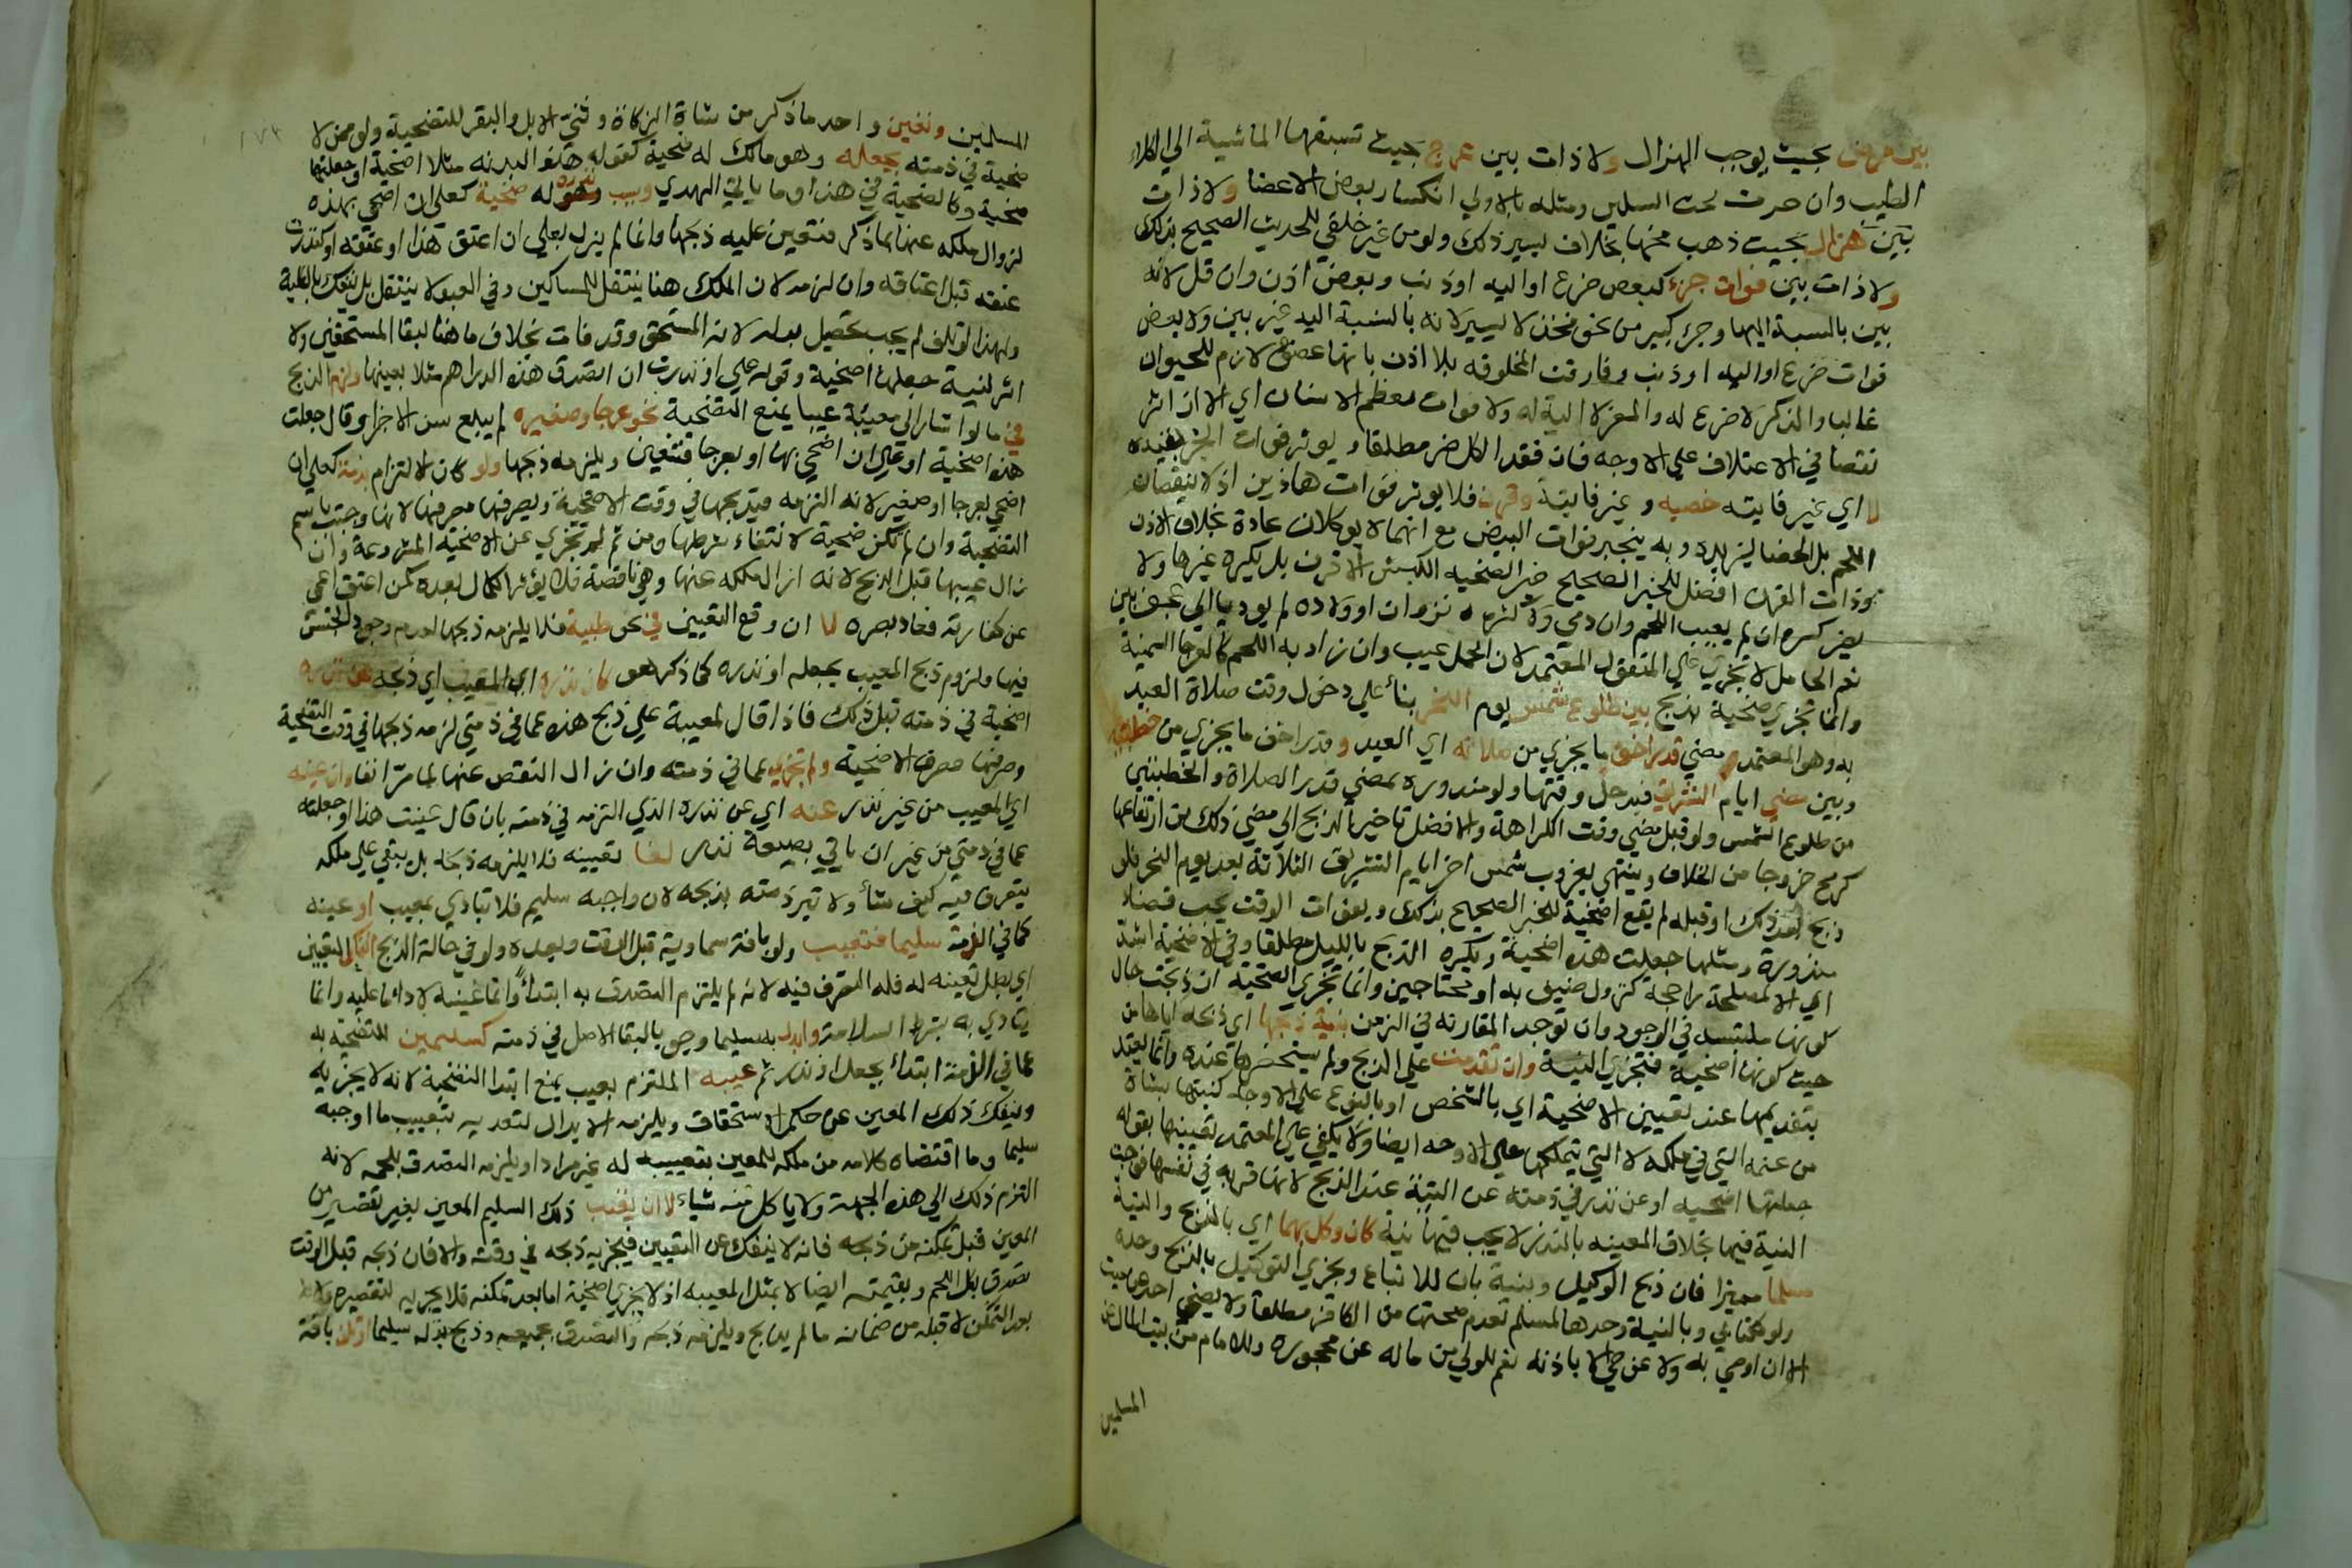 بين مرض بحيث يوجب الهزال ولا ذات بين عرج بحيث تسبقها الماشية الي الكلاء
الطيب وان حدث تحت السكين ومثله بالاولي انكسار بعض الاعضا ولا ذات
بين هزال بحيث ذهب مخها بخلاف يسير ذلك ولو من غير خلقي للحديث الصحيح بذلك
ولا ذات بين فوات جزء كبعض ضرع او اليه او ذنب وبعض اذن وان قل لانه
بين بالنسبة اليها وجزء كبير من نحو فخذ لا يسير لانه بالنسبة اليه غير بين ولا بعض
فوات ضرع او اليه او ذنب وفارقت المخلوقه بلا اذن بانها عضو لازم للحيوان
غالبا والذكر لا ضرع له والمعز لا الية له ولا فوات معظم الاسنان اي الا ان اثر
نقصا في الاعتلاف علي الاوجه فان فقد الكل ضر مطلقا ويوثر فوات الجزء بقيده
لا اي غير فايته خصيه و غير فايتة وقرن فلا يوثر فوات هاذين اذ لا ينقصان
اللحم بل الخصا يزيده وبه ينجبر فوات البيض مع انهما لا يوكلان عادة بخلاف الاذن
وذات القرن افضل للخبر الصحيح خير الضحيه الكبش الاقرن بل يكره غيرها ولا
يضر كسره ان لم يعيب اللحم وان دمي ولا كثرة نزوان او ولاده لم يود يا الي عجف بين
نعم الحامل لا تجزي علي المنقول المعتمد لان الحمل عيب وان زاد به اللحم كالعرجا السمنية
وانما تجزي ضحية تذبح بين طلوع شمس يوم النحر بناء علي دخول وقت صلاة العيد
به وهو المعتمد و مضي قدر اخف ما يجزي من صلاته اي العيد و قدر اخف ما يجزي من خطبته
وبين مضي ايام التشريق فيدخل وقتها ولو منذوره بمضي قدر الصلاة والخطبتين
من طلوع الشمس ولو قبل مضي وقت الكراهة والافضل تاخير الذبح الي مضي ذلك من ارتفاعها
كرمح خروجا من الخلاف وينتهي بغروب شمس اخر ايام التشريق الثلاثة بعد يوم النحر فلو
ذبح بعد ذلك او قبله لم يقع اضحية للخبر الصحيح بذلك وبفوات الوقت يجب قضاء
منذورة ومثلها جعلت هذه اضحية ويكره الذبح بالليل مطلقا وفي الاضحية اشد
اي الا لمصلحة راجحة كنزول ضيف به او محتاجين وانما تجزي الضحية ان ذبحت حال
كونها ملتبسه في الوجود وان توجد المقارنه في الزمن بنية ذبحها اي ذبحه اياها من
حيث كونها اضحية فتجزي النية وان تقدمت علي الذبح ولم يستحضرها عنده وانما يعتد
بتقديمها عند تعيين الاضحية اي بالشخص او بالنوع علي الاوجه كنيتها بشاة
من غنمه التي في ملكه لا التي يتملكها علي الاوجه ايضا ولا يكفي علي المعتمد تعيينها بقوله
جعلتها اضحيه او عن نذر في ذمته عن النية عند الذبح لانها قربه في نفسها فوجبت
النية فيها بخلاف المعينه بالنذر لا يجب فيها نية كان وكل بهما اي بالذبح والنية
مسلما مميزا فان ذبح الوكيل وبنية بان للاتباع ويجزي التوكيل بالذبح وحده
ولو لكتابي وبالنية وحدها لمسلم لعدم صحتها من الكافر مطلقا ولا يضحي احد عن ميت
الا ان اوصي به ولا عن حي الا باذنه نعم للولي من ماله عن محجوره وللامام من بيت المال عن
المسلمين
١٧٢
المسلمين وتعين واحد ما ذكر من شاة الزكاة وثني الابل والبقر للتضحية ولو ممن لا
ضحية في ذمته بجعله وهو مالك له ضحية كقوله هذه البدنه مثلا اضحية او جعلتها
ضحية وكالضحية في هذا وما ياتي الهدي وبنذره له ضحية كعلي ان اضحي بهذه
لزوال ملكه عنها بما ذكر فتعين عليه ذبحها وانما لم يزل بعلي ان اعتق هذا او عتقه او كنذرت
عتقه قبل اعتاقه وان لزمه لان الملك هنا ينتقل للمساكين وفي العبد لا ينتقل بل ينفك بالكلية
ولهذا لو تلف لم يجب تحصيل بدله لانه المستحق وقد فات بخلاف ما هنا لبقا المستحقين ولا
اثر لنية جعلها اضحية وقوله علي او نذرت ان اتصدق هذه الدراهم مثلا بعينها ولزم الذبح
في ما لو اشار الي معيبة عيبا يمنع التضحية نحو عرجا وصغيره لم يبلغ سن الاجزا وقال جعلت
هذه اضحية او علي ان اضحي بها او بعرجا فتتعين ويلزمه ذبحها ولو كان الالتزام بذمة كعلي ان
اضحي بعرجا او صغير لانه التزمه فيذبحها في وقت الاضحية ويصرفها مصرفها لانها وجبت باسم
التضحية وان لم تكن ضحية لانتفاء شرطها ومن ثم لم تجزي عن الاضحية المشروعة وان
زال عيبها قبل الذبح لانه ازال ملكه عنها وهي ناقصة فلا يؤثر الكمال بعده كمن اعتق اعمي
عن كفارته فعاد بصره لا ان وقع التعيين في نحو ظبية فلا يلزمه ذبحها لعدم وجود الجنس
فيها ولزوم ذبح المعيب بجعله او نذره كما ذكر هو كان نذره اي المعيب اي ذبحه عن نذره
اضحية في ذمته قبل ذلك فاذا قال لمعيبة علي ذبح هذه عما في ذمتي لزمه ذبحها في وقت التضحية
وصرفها مصرف الاضحية ولم تجزيه عما في ذمته وان زال النقص عنها لما مر انفا وان عينه
اي المعيب من غير نذر عنه اي عن نذره الذي التزمه في ذمته بان قال عينت هذا او جعلته
عما في ذمتي من غير ان ياتي بصيغة نذر لغا تعيينه فلا يلزمه ذبحه بل يبقي علي ملكه
يتصرف فيه كيف شاء ولا تبر ذمته بذبحه لان واجبه سليم فلا يتادي بمعيب او عينه
كما في الذمة سليما فتعيب ولو بافة سماوية قبل الوقت وبعده ولو في حالة الذبح انفك التعيين
اي بطل تعينه له فله التصرف فيه لانه لم يلتزم التصدق به ابتداء وانما عينه لاداء ما عليه وانما
يتادي به بشرط السلامة وابدل به سليما وجوبا لبقا الاصل في ذمته كسليم عين للتضحية به
عما في الذمة ابتداء بجعل او نذر ثم عيبه الملتزم بعيب يمنع ابتدا التضحية لانه لا يجزيه
وينفك ذلك المعين عن حكم الاستحقاق ويلزمه الابدال لتعديه بتعييب ما اوجبه
سليما وما اقتضاه كلامه من ملكه للمعين بتعييبه له غير مراد او يلزمه التصدق بلحمه لانه
التزم ذلك الي هذه الجهة ولا ياكل منه شياء لا ان تعيب ذلك السليم المعين بغير تقصير من
المعين قبل تمكنه من ذبحه فانه لا ينفك عن التعيين فيجزيه ذبحه في وقته والا فان ذبحه قبل الوقت
تصدق بكل اللحم وبقيمته ايضا لا بمثل المعيبه اذ لا يجزي اضحية اما بعد تمكنه فلا يجزيه لتقصيره
بعد التمكن لا قبله من ضمانه ما لم يذبح ويلزمه ذبحه والتصدق بجميعه وذبح بدله سليما او تلف بافة